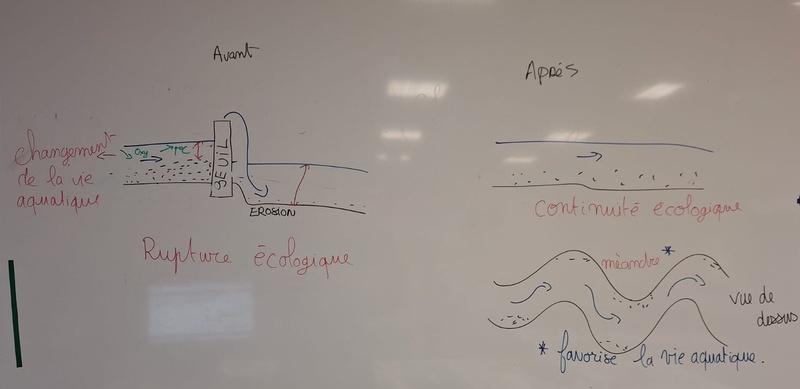 Avant
Changement
de la vie
aquatique
oxy
T°C
SEUIL
EROSION
Rupture écologique
Après
continuité écologique
méandre *
vue de
dessus
* favorise la vie aquatique.